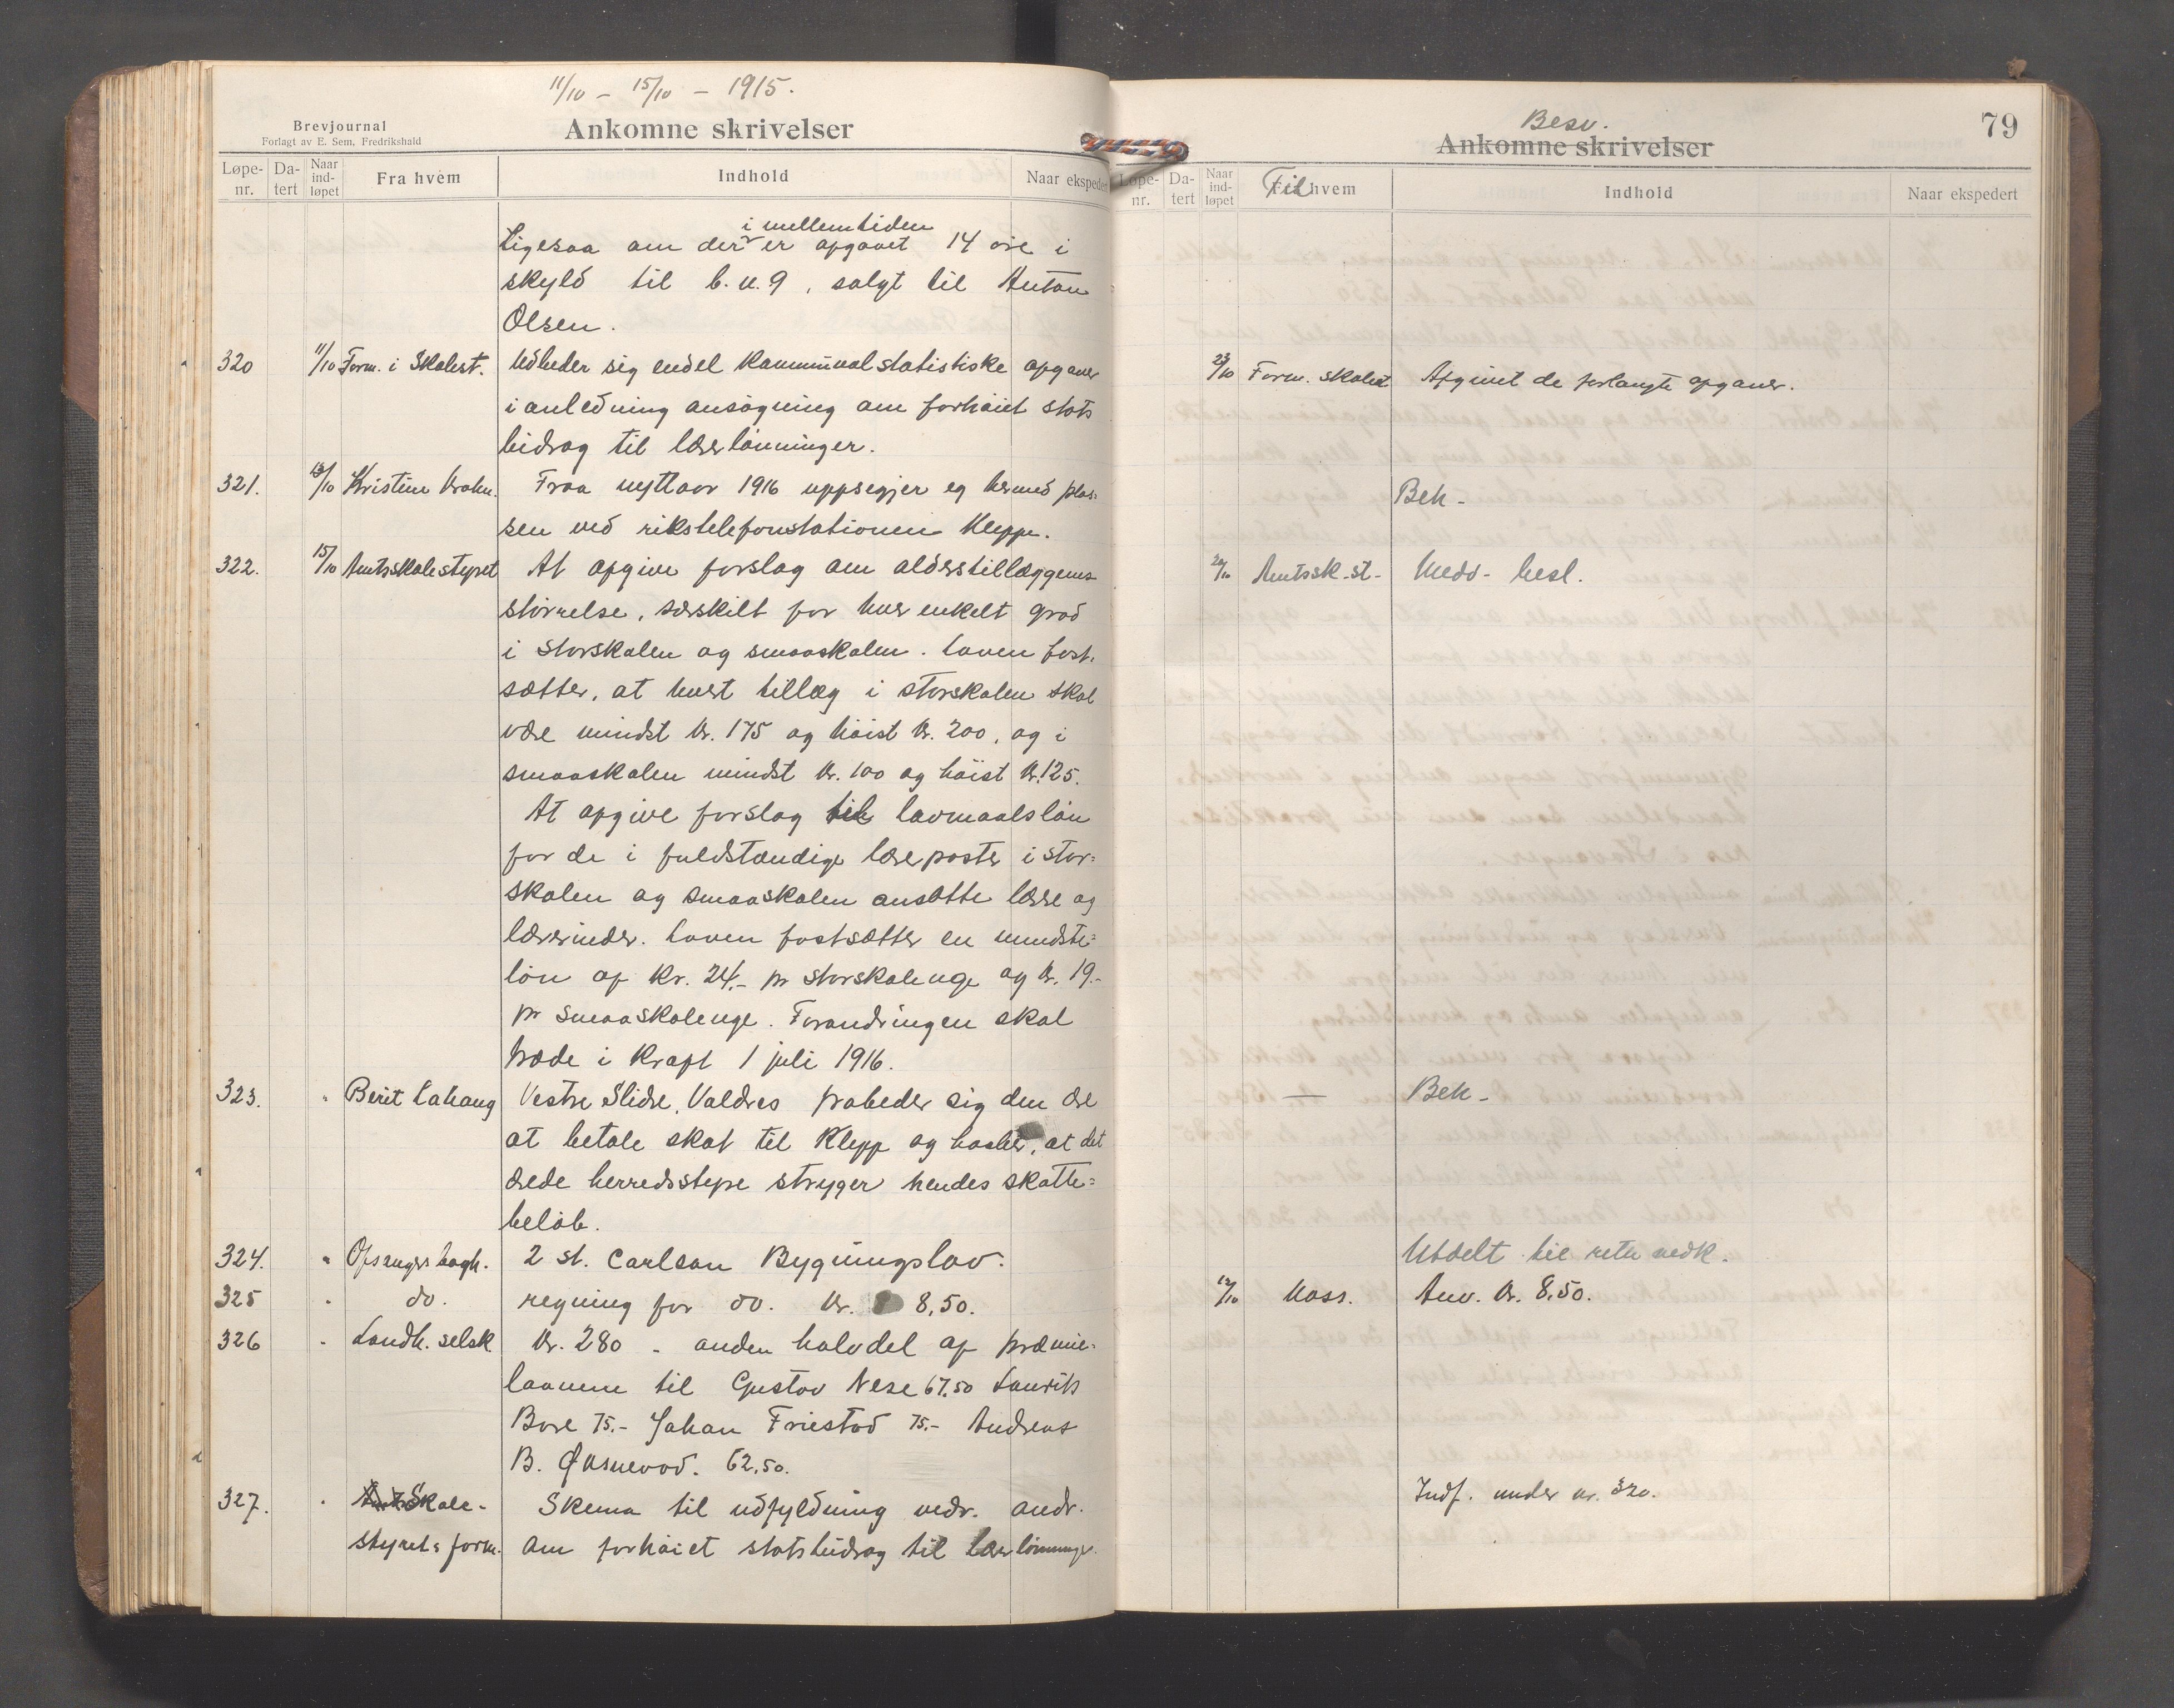 11/10 - 15/10 - 1915.
Brevjournal
Forlagt av E. Sem, Fredrikshald
Ankomne skrivelser
Løpe-nr. Da-tert Naar ind-løpet Fra hvem Indhold Naar ekspedert
i mellemtiden
Ligesaa om der er opgavet 14 øre i
skyld til b.n. 9, solgt til Anton
Olsen.
320 11/10 Form. i Skolest. Udbeder sig endel kommunalstatistiske opgaver
i anledning ansøgning om forhøiet stats
bidrag til lærerlønninger.
321. 13/10 Kristine Krohn. Fraa nyttaar 1916 uppsegjer eg hermed plas-
sen ved rikstelefonstationen Kleppe.
322. 15/10 Amtsskolestyret At opgive forslag om alderstillæggenes
størrelse, særskilt for hver enkelt grad
i storskolen og smaaskolen. Loven fast-
sætter, at hvert tillæg i storskolen skal
være mindst kr. 175 og høist kr. 200, og i
smaaskolen mindst kr. 100 og høist kr. 125.
At opgive forslag til lavmaalsløn
for de i fuldstændige lærerposter i stor=
skolen og smaaskolen ansatte lærere og
lærerinder. Loven fastsætter en mindste=
løn af kr. 24.- pr storskoleuge og kr. 19.-
pr smaaskoleuge. Forandringen skal
træde i kraft 1 juli 1916.
323. " Berit Lahaug Vestre Slidre, Valdres frabeder sig den ære
at betale skat til Klepp og haaber, at det
ærede herredsstyre stryger hendes skatte=
beløb.
324. " Opsanger bogh. 2 st. Carlson Bygningslov.
325 " do. regning for do. kr. 8,50.
326 " Landh. selsk kr. 280 - anden halvdel af præmie-
laanene til Gustav Nese 67.50 Lauritz
Bore 75.- Johan Friestad 75.- Andreas
B. Øksnevad. 62,50.
327. " Skole-
styrets form. Skema til udfyldning vedr. andr.
om forhøiet statsbidrag til lærerlønninger.
79
Besv.
Ankomne skrivelser
Løpe-nr. Da-tert Naar ind-løpet Til hvem Indhold Naar ekspedert
23/10 Form. skolest Afgivet de forlangte opgaver.
Beh-
Amtssk.st- Medd- besl.
— Beh-
Utdelt til rette vedk.
Kass. Anv. kr. 8,50.
Indf. under nr. 320.